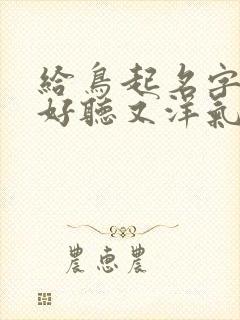 給鳥起名字
好聽又洋氣
農惠農